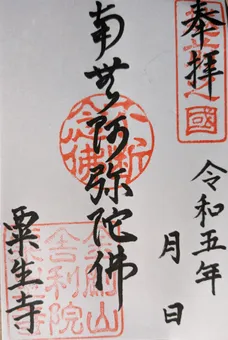 奉拝
令和五年
月 日
南無阿弥陀佛
不断
念佛
舎利院
粟生寺